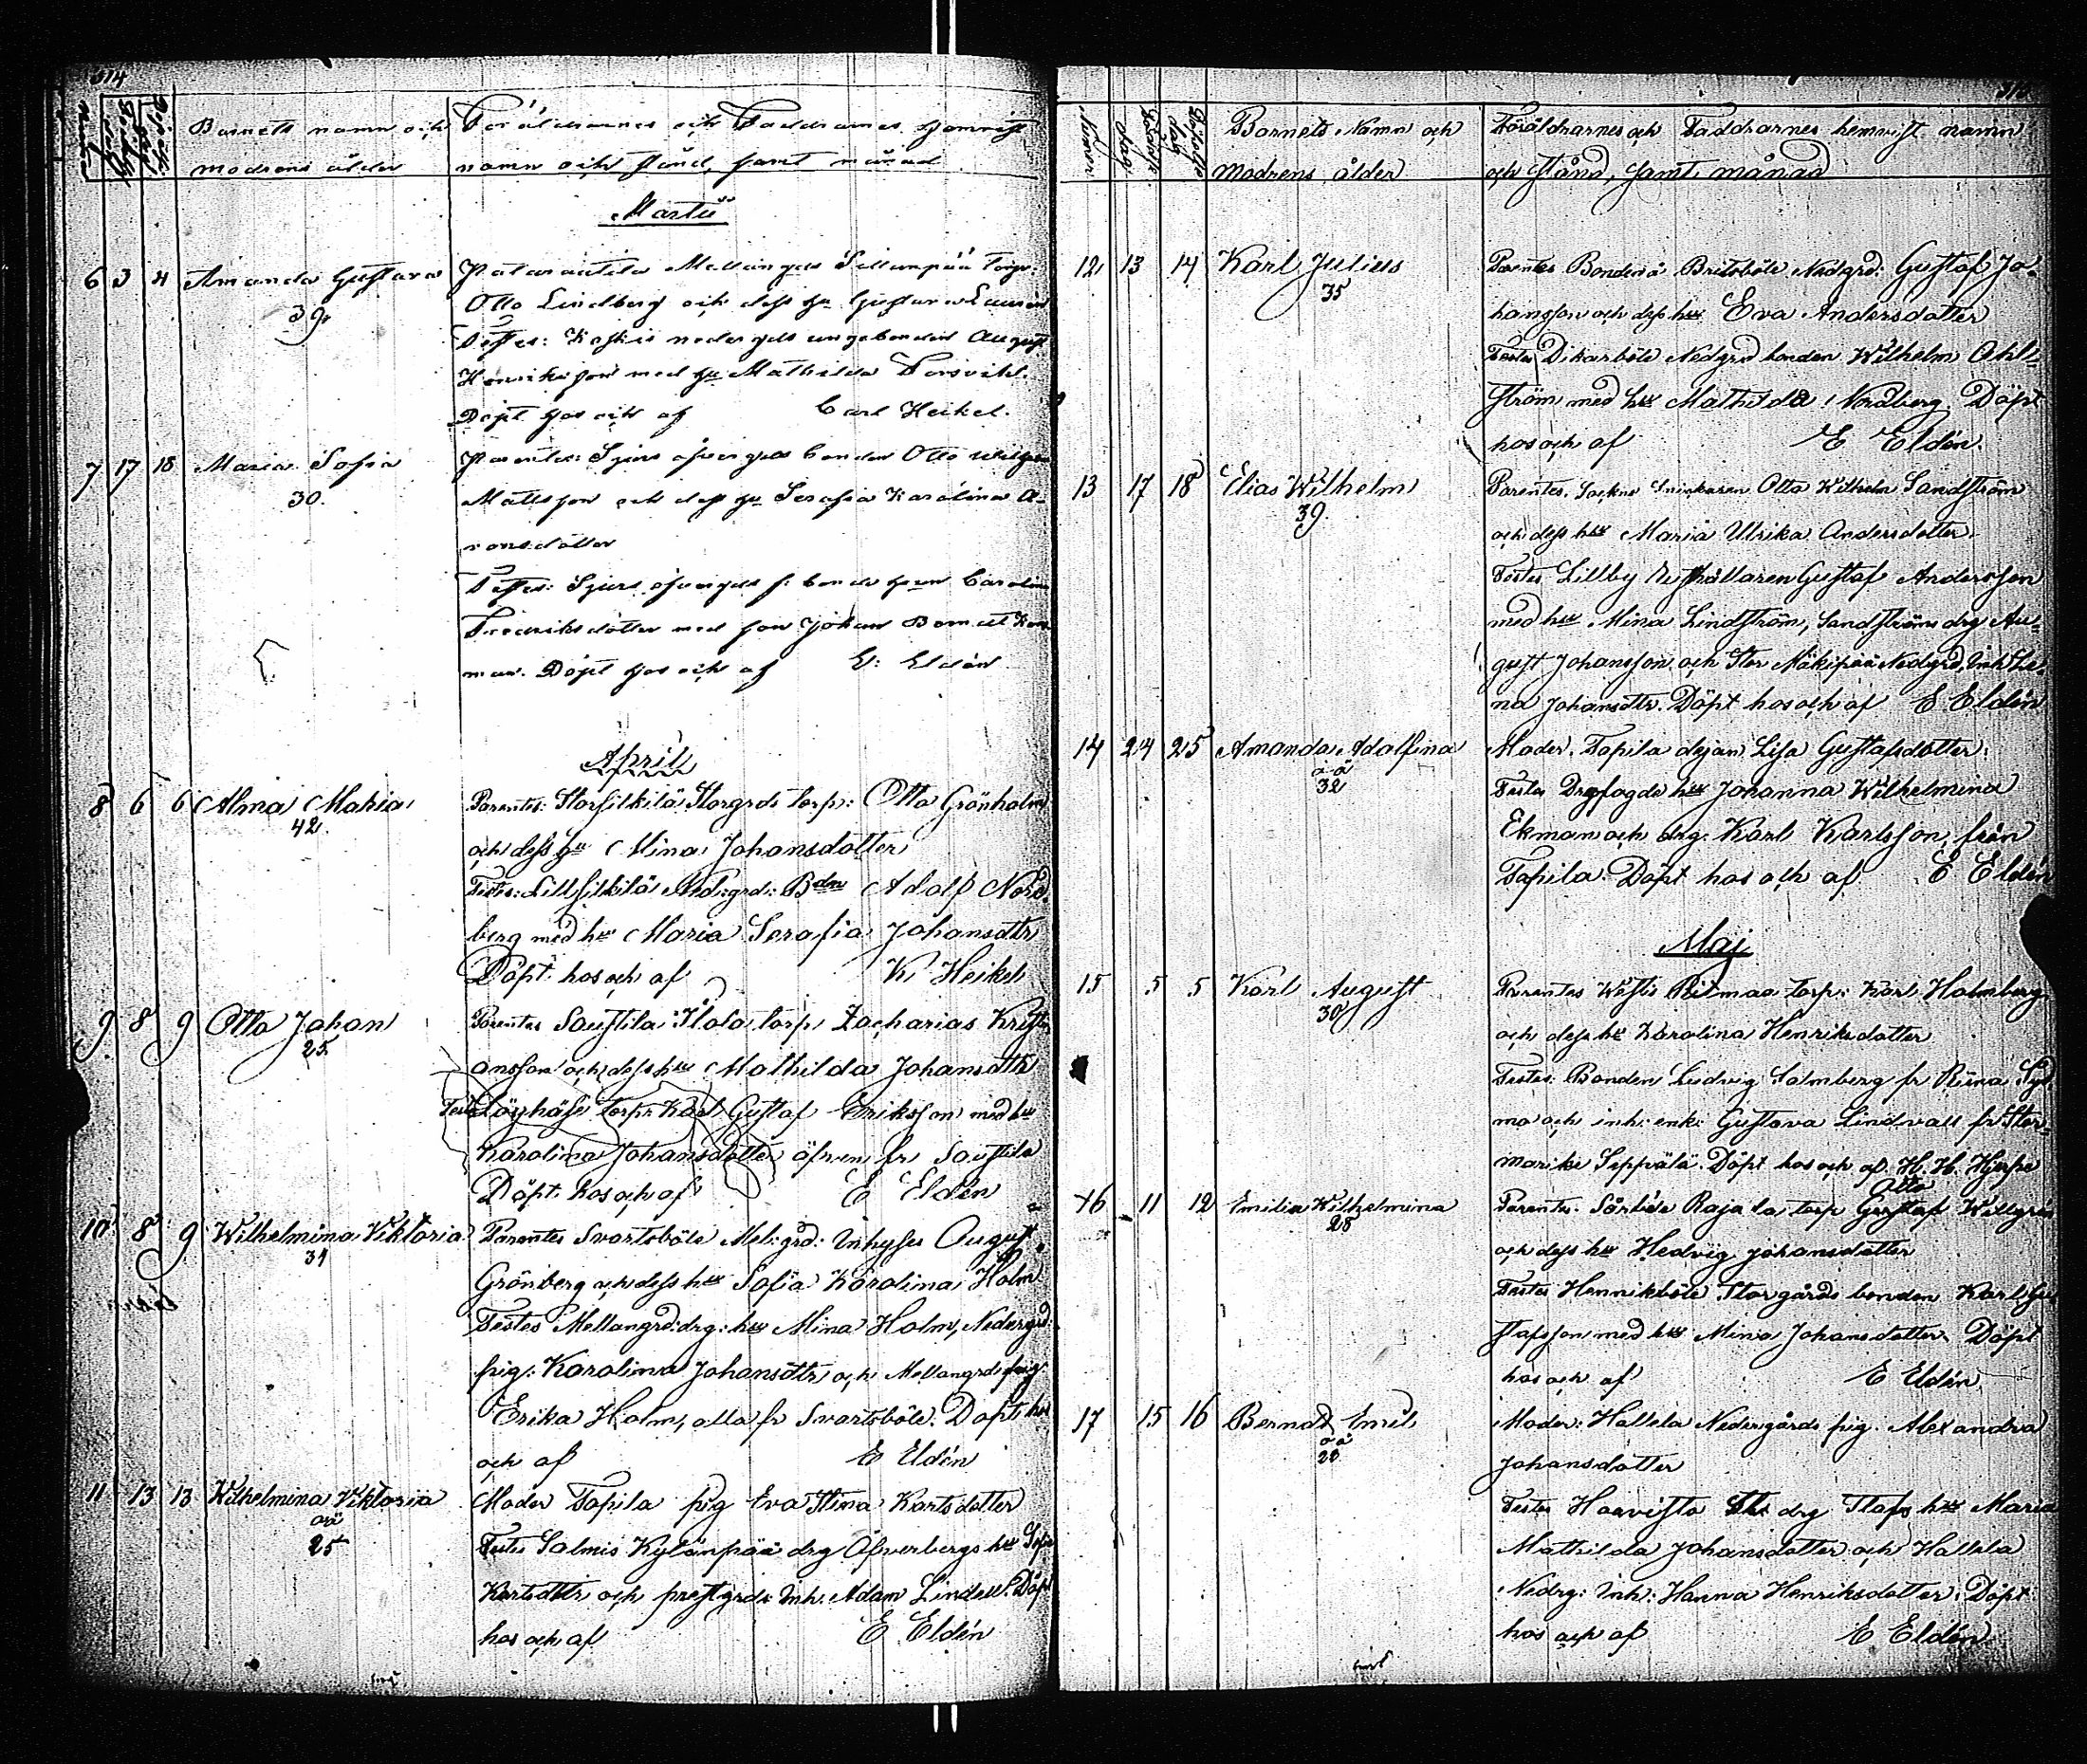 514
Barnets namn och
modrens ålder
Föräldrarnes och Faddrarnes hemvist
namn och stånd, samt månad
Martii
6 3 4 Amanda Gustava
39
Mellangds Sillanpää torp:
Otto Lindberg och dess hu Gustava
Testes: Koskis nedergds August
Henriksson med hu Mathilda
Döpt hos och af Carl Heikel.
7 17 18 Maria Sofia
30.
Parentes: öfvergds bonden Otto
Mattsson och dess hu Serafia Karolina A-
ronsdotter
Testes: öfvergds f. bonde Carolina
Fredriksdotter med son Johan
Döpt hos och af E: Eldén
April
8 6 6 Alma Maria
42.
Parentes: Storsilkilä Storgrds torp: Otto Grönholm
och dess hu Mina Johansdotter
Testes: Lillsilkilä Ned:grd: Bdn Adolf Nord-
berg med hu Maria Serafia Johansdtr
Döpt hos och af K. Heikel
9 8 9 Otto Johan
25
Parentes Saustila torp Zacharias Kristi-
ansson och dess hu Mathilda Johansdtr
Testes torp: Karl Gustaf Eriksson med hu
Karolina Johansdotter äfven fr Saustila
Döpt hos och af E Eldén
10 8 9 Wilhelmina Viktoria
34
Parentes Svartsböle Mel:grd: Inhyses August
Grönberg och dess hu Sofia Karolina Holm
Testes Mellangrd:drg: hu Mina Holm, Nedergrd:
pig: Karolina Johansdtr och Mellangrds pig
Erika Holm, alla fr Svartsböle. Döpt hos
och af E Eldén
11 13 13 Wilhelmina Viktoria
oä
25
Moder Tapila pig Eva Stina Karlsdotter
Testes Salmis Kylänpää drg Öfverbergs hu Sofia
Karlsdtr och prestgrds Inh. Adam Lindell. Döpt
hos och af E Eldén
Barnets Namn och
Modrens ålder
Föräldrarnes och Faddrarnes hemvist namn
och stånd, samt månad
12 13 14 Karl Julius
35
Parentes Bonden å Britsböle Nedgrd: Gustaf Jo-
hansson och dess hu Eva Andersdotter
Testes Dikarböle Nedgrd bonden Wilhelm Ahl-
ström med hu Mathilda Nordberg. Döpt
hos och af E Eldén.
13 17 18 Elias Wilhelm
39.
Parentes. Sockne Snickaren Otto Wilhelm Sandström
och dess hu Maria Ulrika Andersdotter
Testes Lillby Gustaf Andersson
med hu Mina Lindström, Sandströms drg Au-
gust Johansson och Stor Mäkipää Nedgrd. Inh Le-
na Johansdtr. Döpt hos och af E Eldén
14 24 25 Amanda Adolfina
oä
32
Moder. Tapila dejan Lisa Gustafsdotter.
Testes hu Johanna Wilhelmina
Ekman och drg: Karl Karlsson, från
Tapila. Döpt hos och af E Eldén
Maj
15 5 5 Karl August
30
Parentes torp: Karl Holmberg
och dess hu Karolina Henriksdotter
Testes: Bonden Ludvig Salmberg fr
och inh: enk: Gustava Lindvall fr Stor-
marike Seppälä. Döpt hos och af H. H. Hjerpe
16 11 12 Emilia Wilhelmina
28
Otto
Parentes. Rajala torp Gustaf
och dess hu Hedvig Johansdotter
Testes Henriksböle Storgårds bonden Karl Gu-
stafsson med hu Mina Johansdotter. Döpt
hos och af E Eldén
17 15 16 Bernd Emil
oä
20
Moder: Hallela Nedergårds pig: Alexandra
Johansdotter
Testes Haavisto drg Stafs hu Maria
Mathilda Johansdotter och Hallela
Nedrg: Inh: Hanna Henriksdotter. Döpt
hos och af E Eldén